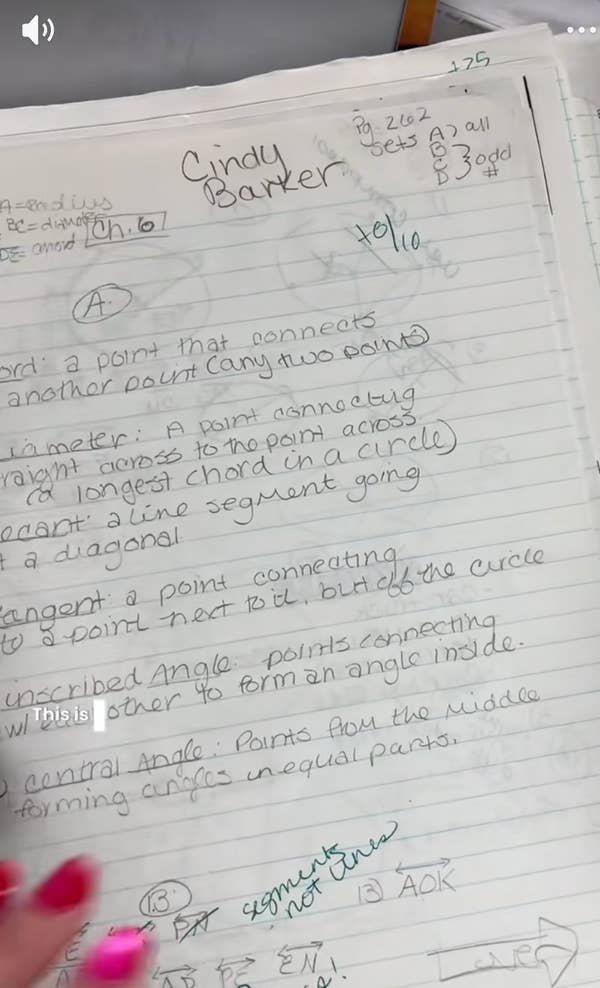 +25
Pg. 262
Sets A) all
B
C } odd
D #
Cindy
Barker
A = radius
BC =
DE = chord
Ch. 6
+0/10
A.
ord: a point that connects
another point (any two points)
iameter: A point connectig
raight across to the point across
(a longest chord in a circle)
ecant: a line segment going
a diagonal
angent: a point connecting
to a point next to it, but off the circle
inscribed Angle: points connecting
w/ other to form an angle inside.
This is
central Angle: Points from the middle
forming angles in equal parts.
B.
segments
not lines
13) AOK
PE EN
over